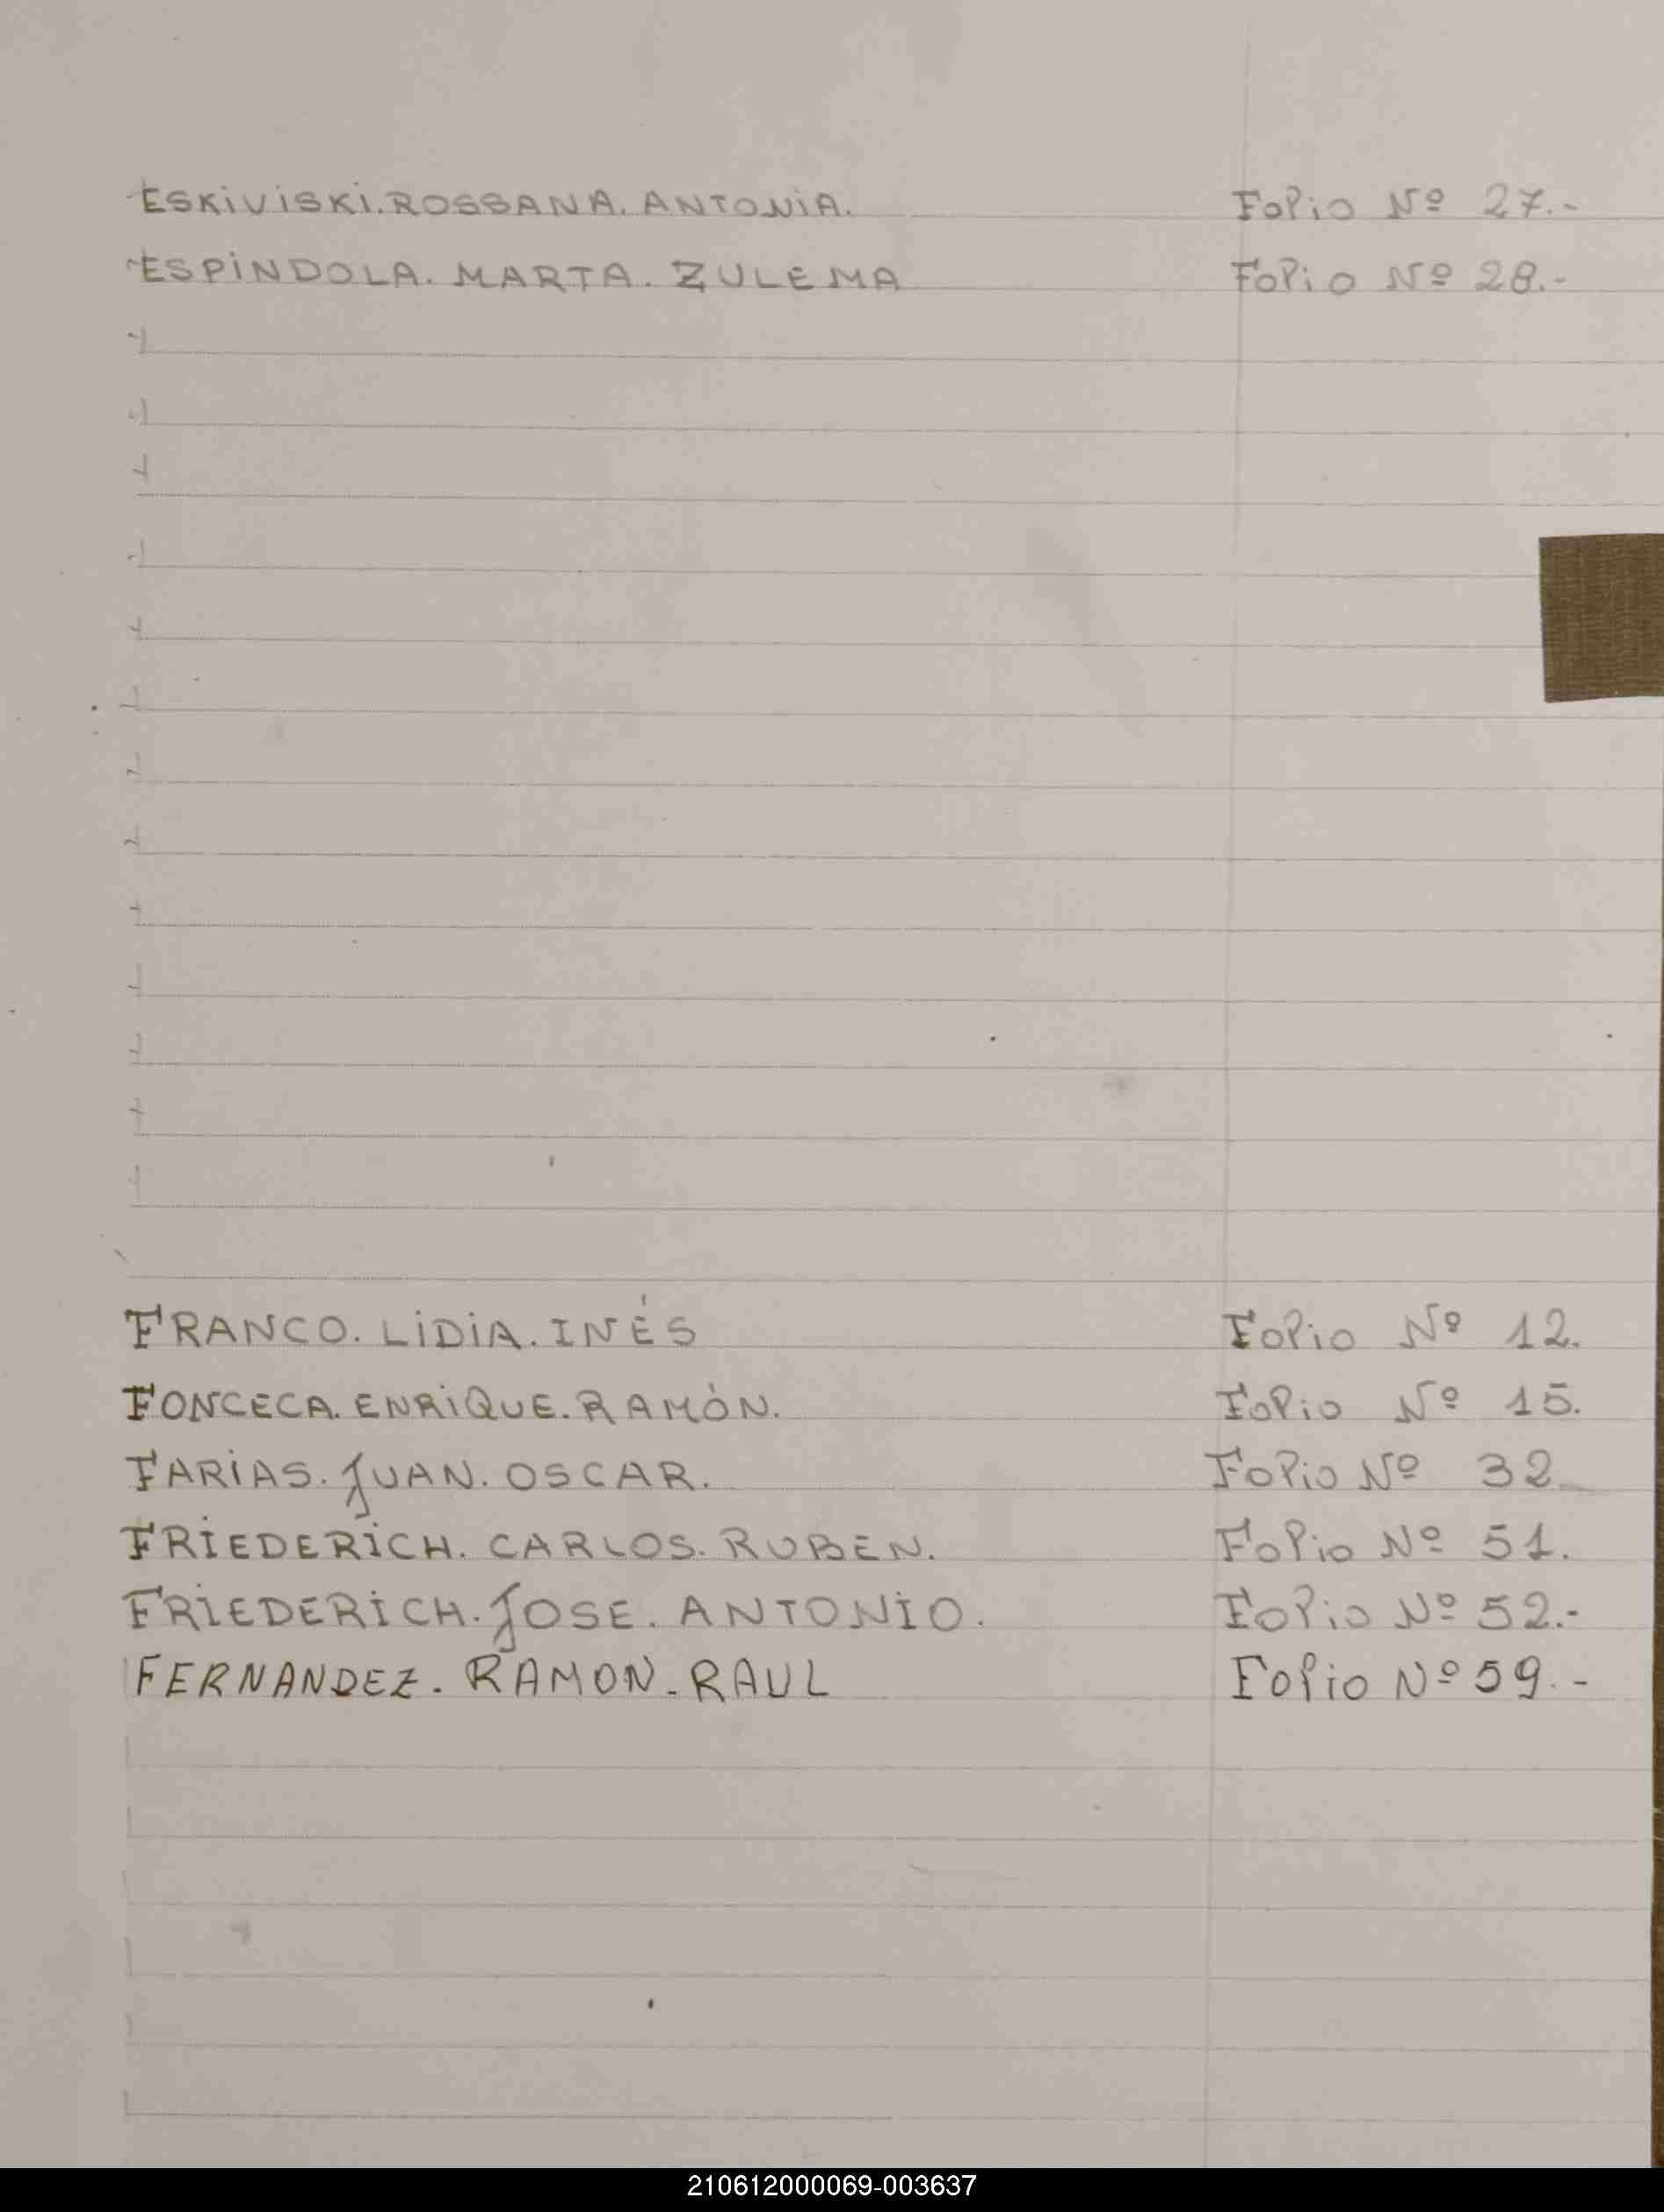 ESKIVISKI. ROSSANA. ANTONIA. Folio Nº 27.-
ESPINDOLA. MARTA. ZULEMA Folio Nº 28.-
FRANCO. LIDIA. INÉS Folio Nº 12.
FONCECA. ENRIQUE. RAMÓN. Folio Nº 15.
FARIAS. JUAN. OSCAR. Folio Nº 32
FRIEDERICH. CARLOS. RUBEN. Folio Nº 51.
FRIEDERICH. JOSE. ANTONIO. Folio Nº 52.-
FERNANDEZ. RAMON. RAUL Folio Nº 59.-
210612000069-003637